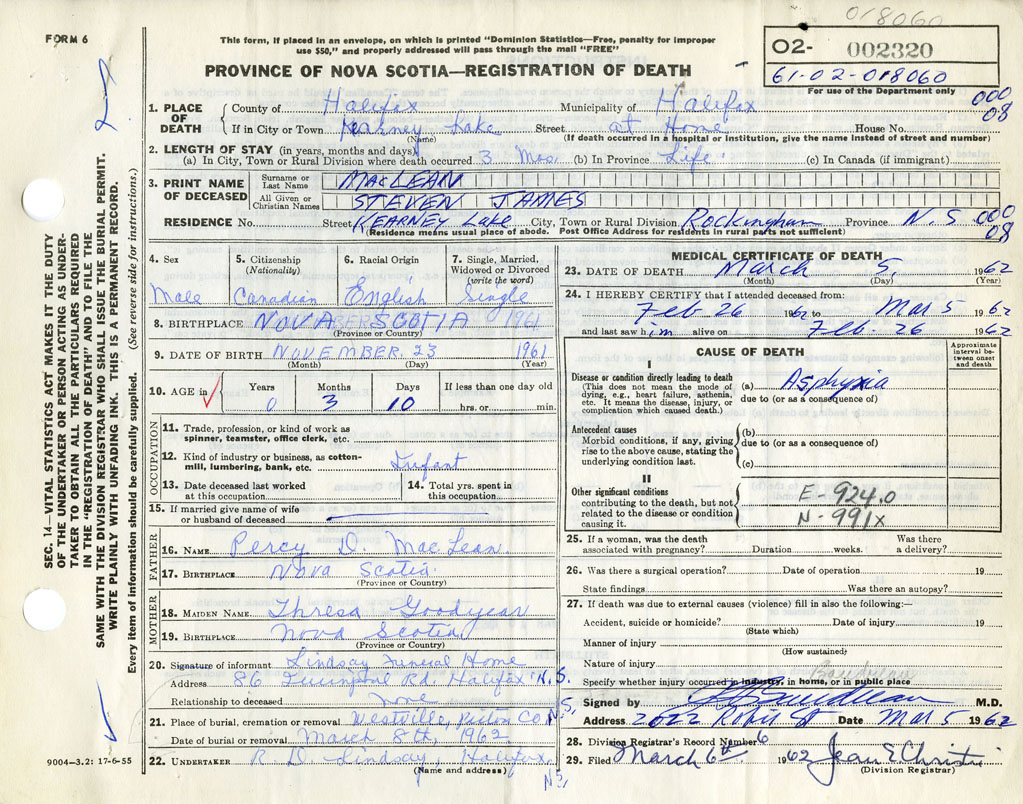 018060
FORM 6
This form, if placed in an envelope, on which is printed "Dominion Statistics—Free, penalty for improper
use $50," and properly addressed will pass through the mail "FREE"
PROVINCE OF NOVA SCOTIA—REGISTRATION OF DEATH
O2- 002320
61-02-018060
For use of the Department only
000
08
1. PLACE OF DEATH
County of Halifax Municipality of Halifax
If in City or Town Kearney Lake Street at Home House No.
(Name) (If death occurred in a hospital or institution, give the name instead of street and number)
2. LENGTH OF STAY (in years, months and days)
(a) In City, Town or Rural Division where death occurred 3 Mos. (b) In Province Life. (c) In Canada (if immigrant)
3. PRINT NAME OF DECEASED
Surname or Last Name MACLEAN
All Given or Christian Names STEVEN JAMES
RESIDENCE No. Street KEARNEY Lake City, Town or Rural Division Rockingham Province N.S 000
08
(Residence means usual place of abode. Post Office Address for residents in rural parts not sufficient)
4. Sex
Male
5. Citizenship (Nationality)
Canadian
6. Racial Origin
English
7. Single, Married, Widowed or Divorced (write the word)
Single
8. BIRTHPLACE NOVA SCOTIA 1961
(Province or Country)
9. DATE OF BIRTH NOVEMBER 23 1961
(Month) (Day) (Year)
10. AGE in
Years 0
Months 3
Days 10
If less than one day old
hrs. or min.
OCCUPATION
11. Trade, profession, or kind of work as
spinner, teamster, office clerk, etc.
12. Kind of industry or business, as cotton-
mill, lumbering, bank, etc. Infant
13. Date deceased last worked
at this occupation
14. Total yrs. spent in
this occupation
15. If married give name of wife
or husband of deceased
FATHER
16. NAME Percy D. MacLean
17. BIRTHPLACE Nova Scotia
(Province or Country)
MOTHER
18. MAIDEN NAME Thresa Goodyear
19. BIRTHPLACE Nova Scotia
(Province or Country)
20. Signature of informant Lindsay Funeral Home
Address 86 Rd. Halifax N.S.
Relationship to deceased none
21. Place of burial, cremation or removal Westville, Pictou Co N.S,
Date of burial or removal March 8th, 1962
22. UNDERTAKER R D. Lindsay, Halifax,
N.S,
(Name and address)
9004—3.2: 17-6-55
MEDICAL CERTIFICATE OF DEATH
23. DATE OF DEATH March 5, 1962
(Month) (Day) (Year)
24. I HEREBY CERTIFY that I attended deceased from:
Feb 26 1962 to Mar 5 1962
and last saw him alive on Feb. 26 1962
CAUSE OF DEATH
Approximate interval be-
tween onset and death
I
Disease or condition directly leading to death
(This does not mean the mode of
dying, e.g., heart failure, asthenia,
etc. It means the disease, injury, or
complication which caused death.)
(a) Asphyxia
due to (or as a consequence of)
Antecedent causes
Morbid conditions, if any, giving
rise to the above cause, stating the
underlying condition last.
(b)
due to (or as a consequence of)
(c)
II
Other significant conditions
contributing to the death, but not
related to the disease or condition
causing it.
E-924.0
N-991x
25. If a woman, was the death Was there
associated with pregnancy? Duration weeks. a delivery?
26. Was there a surgical operation? Date of operation 19
State findings Was there an autopsy?
27. If death was due to external causes (violence) fill in also the following:—
Accident, suicide or homicide? Date of injury 19
(State which)
Manner of injury
(How sustained)
Nature of injury
Specify whether injury occurred in industry, in home, or in public place
Signed by M.D.
Address 2022 Robie St Date Mar 5 1962
28. Division Registrar's Record Number 6
29. Filed March 6th, 1962 Jean E Christie
(Division Registrar)
SEC. 14—VITAL STATISTICS ACT MAKES IT THE DUTY
OF THE UNDERTAKER OR PERSON ACTING AS UNDER-
TAKER TO OBTAIN ALL THE PARTICULARS REQUIRED
IN THE "REGISTRATION OF DEATH" AND TO FILE THE
SAME WITH THE DIVISION REGISTRAR WHO SHALL ISSUE THE BURIAL PERMIT.
WRITE PLAINLY WITH UNFADING INK. THIS IS A PERMANENT RECORD.
Every item of information should be carefully supplied. (See reverse side for instructions.)